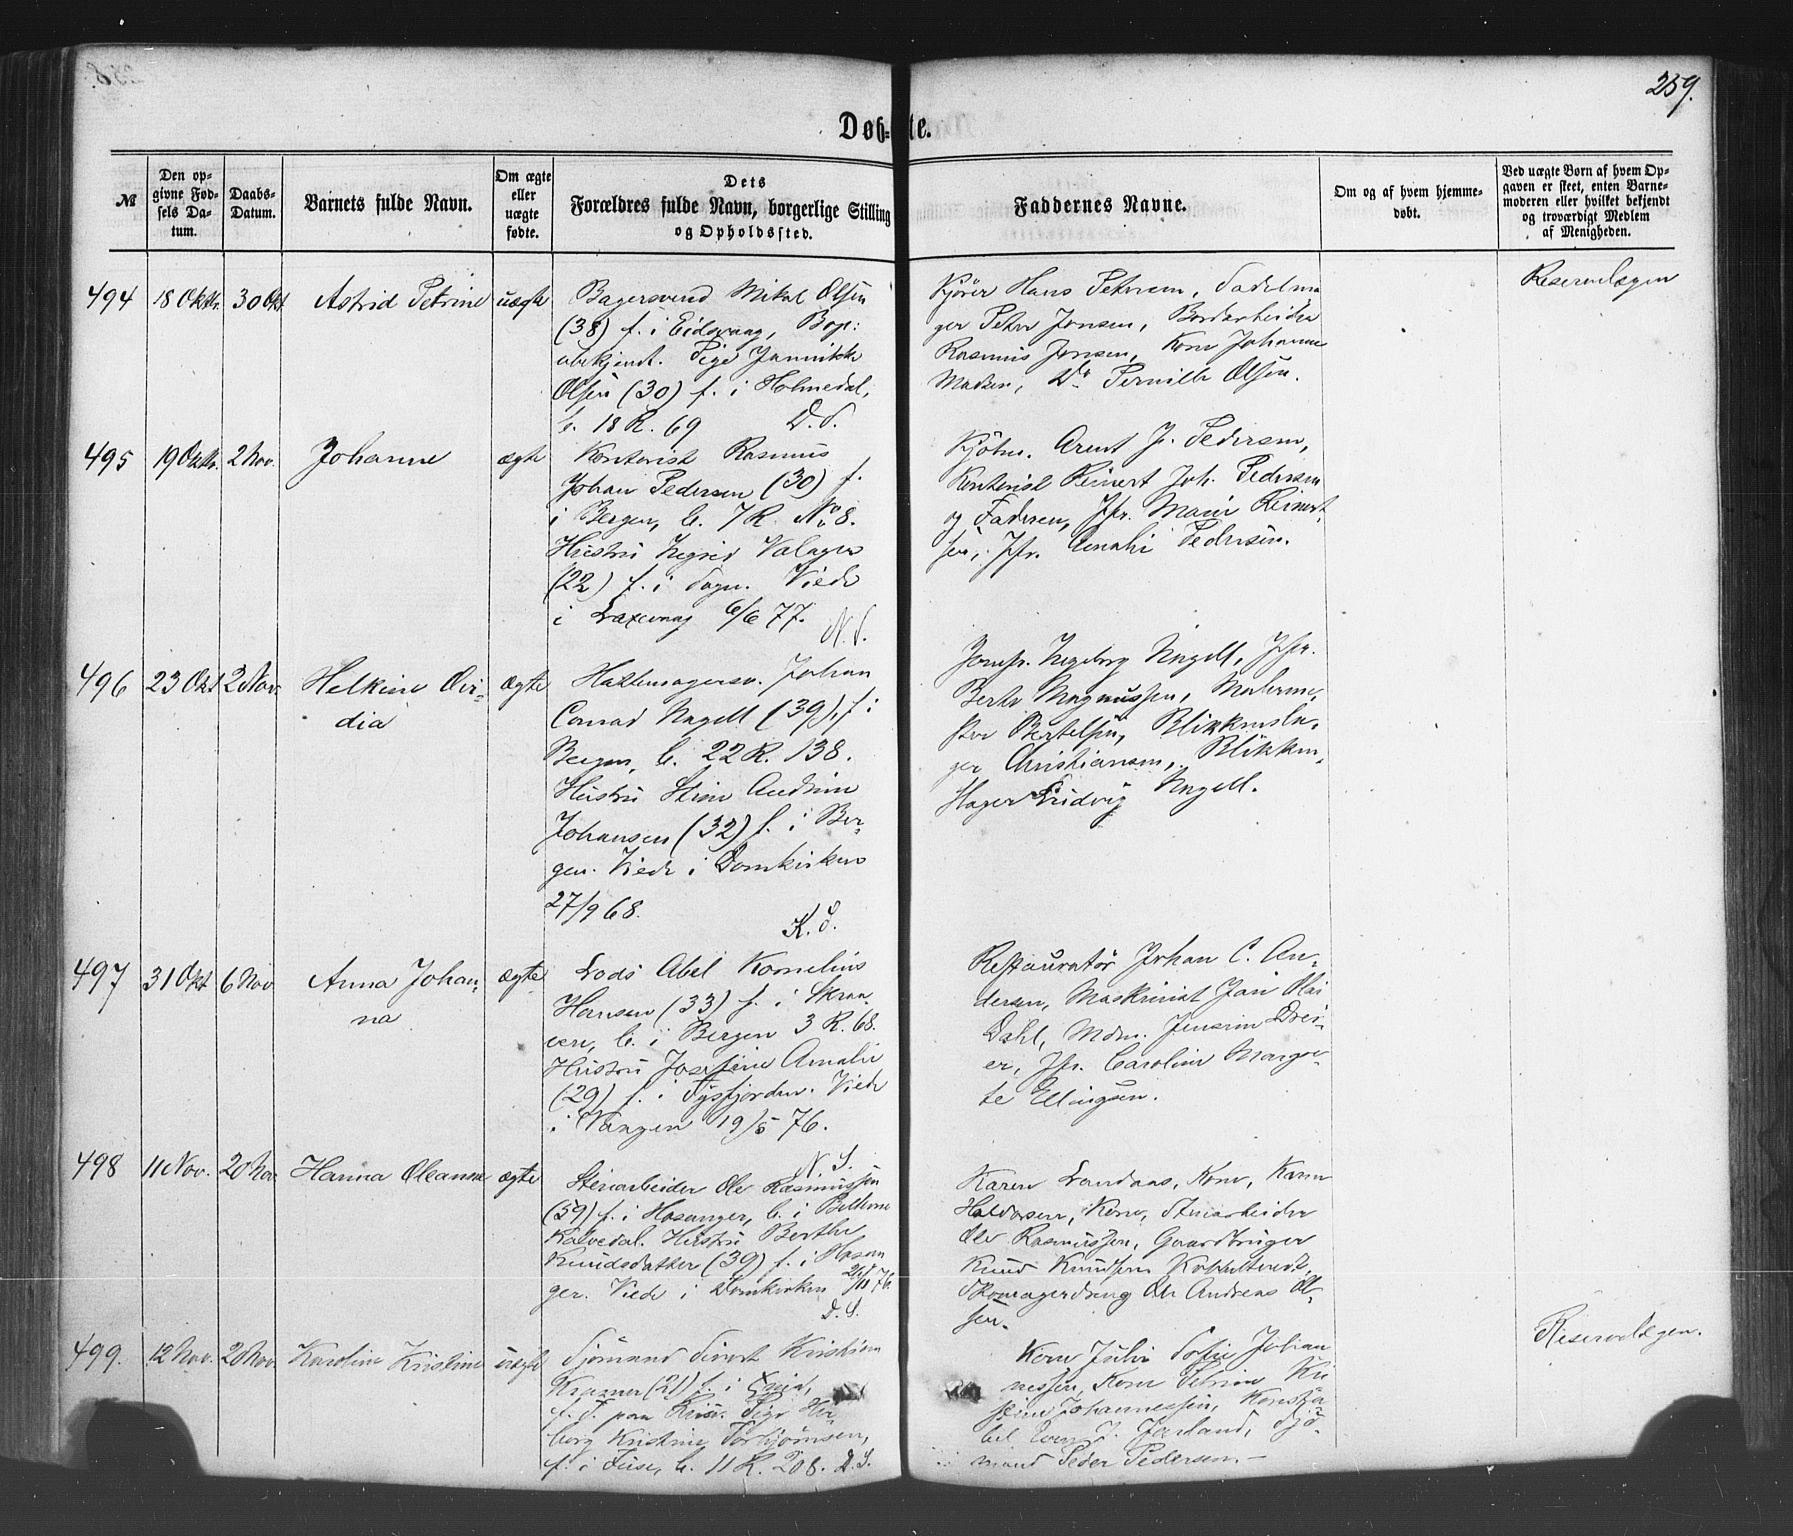 259.
Døb-te.
№
Den opgivne Fødsels Datum.
Daabs-Datum.
Barnets fulde Navn.
Om ægte eller uægte fødte.
Dets Forældres fulde Navn, borgerlige Stilling og Opholdssted.
Faddernes Navne.
Om og af hvem hjemmedøbt.
Ved uægte Børn af hvem Opgaven er skeet, enten Barnemoderen eller hvilket bekjendt og troværdigt Medlem af Menigheden.
494 18 Oktb. 30 Okt Astrid Petrine uægte
Bagersvend Mikal Olsen
(38) f. i Eidsvaag, Bop:
ubekjendt. Pige Jannikke
Olsen (30) f. i Holmedal,
b. 18 R. 69 D.S.
Kjører Hans Petersen, Sadelma
ger Peter Jonsen, Bordarbeider
Rasmus Jonsen, Kone Johanne
Madsen, Do Pernille Olsen.
Reservelægen
495 19 Oktb. 2 Nov. Johanne ægte
Kontorist Rasmus
Johan Pedersen (30) f.
i Bergen, b. 7 R. No 8.
Hustru Ingrid
(22) f. i Sogn. Viede
i Laxevaag 6/6 77.
N.S.
Kjøbm. Arent J. Pedersen,
Kontorist Reinert Joh. Pedersen
og Faderen, Jfr. Marie Reinert
sen, Jfr. Amalie Pedersen.
496 23 Okt 2 Nov. Helkine Ovi-
dia ægte
Hattemagersv. Johan
Conrad Nagell (39), f. i
Bergen, b. 22 R. 138.
Hustru Stine Andrine
Johansen (32) f. i Ber-
gen. Viede i Domkirken
27/9 68.
K.S.
Jomfr. Ingeborg Nagell, Jfr.
Berta Magnussen, Malerme-
ster Bertelsen, Blikkensla-
ger Christiansen, Blikken-
slager Ludvig Nagell.
497 31 Okt 6 Nov Anna Johan-
na ægte
Lods Abel Kornelius
Hansen (33) f. i Skraa-
ven, b. i Bergen 3 R. 68.
Hustru Josefine Amalie
(29) f. i Tysfjorden. Viede
i Vaagen 19/5 76.
N.S.
Restauratør Johan C. An-
dersen, Maskinist Jan
Dahl, Mdm. Jensine Drei-
er, Jfr. Caroline Margre-
te Ellingsen.
498 11 Nov. 20 Nov. Hanna Oleanne ægte
Stenarbeider Ole Rasmussen
(59) f. i Hosanger, b. i
Kalvedal. Hustru Berthe
Knudsdatter (39) f. i Hosan
ger. Viede i Domkirken 76.
D.S.
Karen Landaas, Kone, Karen
Haldorsen, Kone, Stenarbeider
Ole Rasmussen, Gaardbruger
Knud Knudsen
Skomagerdreng Ole Andreas Ol-
sen.
499. 12 Nov. 20 Nov. Karoline Kristine uægte
Sjømand Sivert Kristian
Kramer (21) b. i
f. T. paa Reise. Pige Her-
borg Kristine Torbjørnsen,
f. i Fuse, b. 11 R. 208. D.S.
Kone Julie Sofie Johan
nessen, Kone Petrine Kri
stine Johannessen, Konsta-
bel J. Jarland, Sjø
mand Peder Pedersen.
Reservelægen.